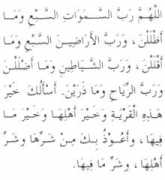 اللَّهُمَّ رَبَّ السَّـمَوَاتِ السَّبْعِ وَمَا
أَظْلَلْنَ، وَرَبَّ الأَرَاضِيـنَ السَّبْعِ وَمَا
أَقْلَلْنَ، وَرَبَّ الشَّيَاطِيْنِ وَمَا أَضْلَلْنَ
وَرَبَّ الرِّيَاحِ وَمَا ذَرَيْنَ. أَسْأَلُكَ خَيْرَ
هَـذِهِ الْقَرْيَـةِ وَخَيْرَ أَهْلِهَا وَخَيْرَ مَا
فِيهَا، وَأَعُـوْذُ بِـكَ مِـنْ شَـرِّهَا وَشَـرِّ
أَهْلِهَا، وَشَرِّ مَا فِيهَا.